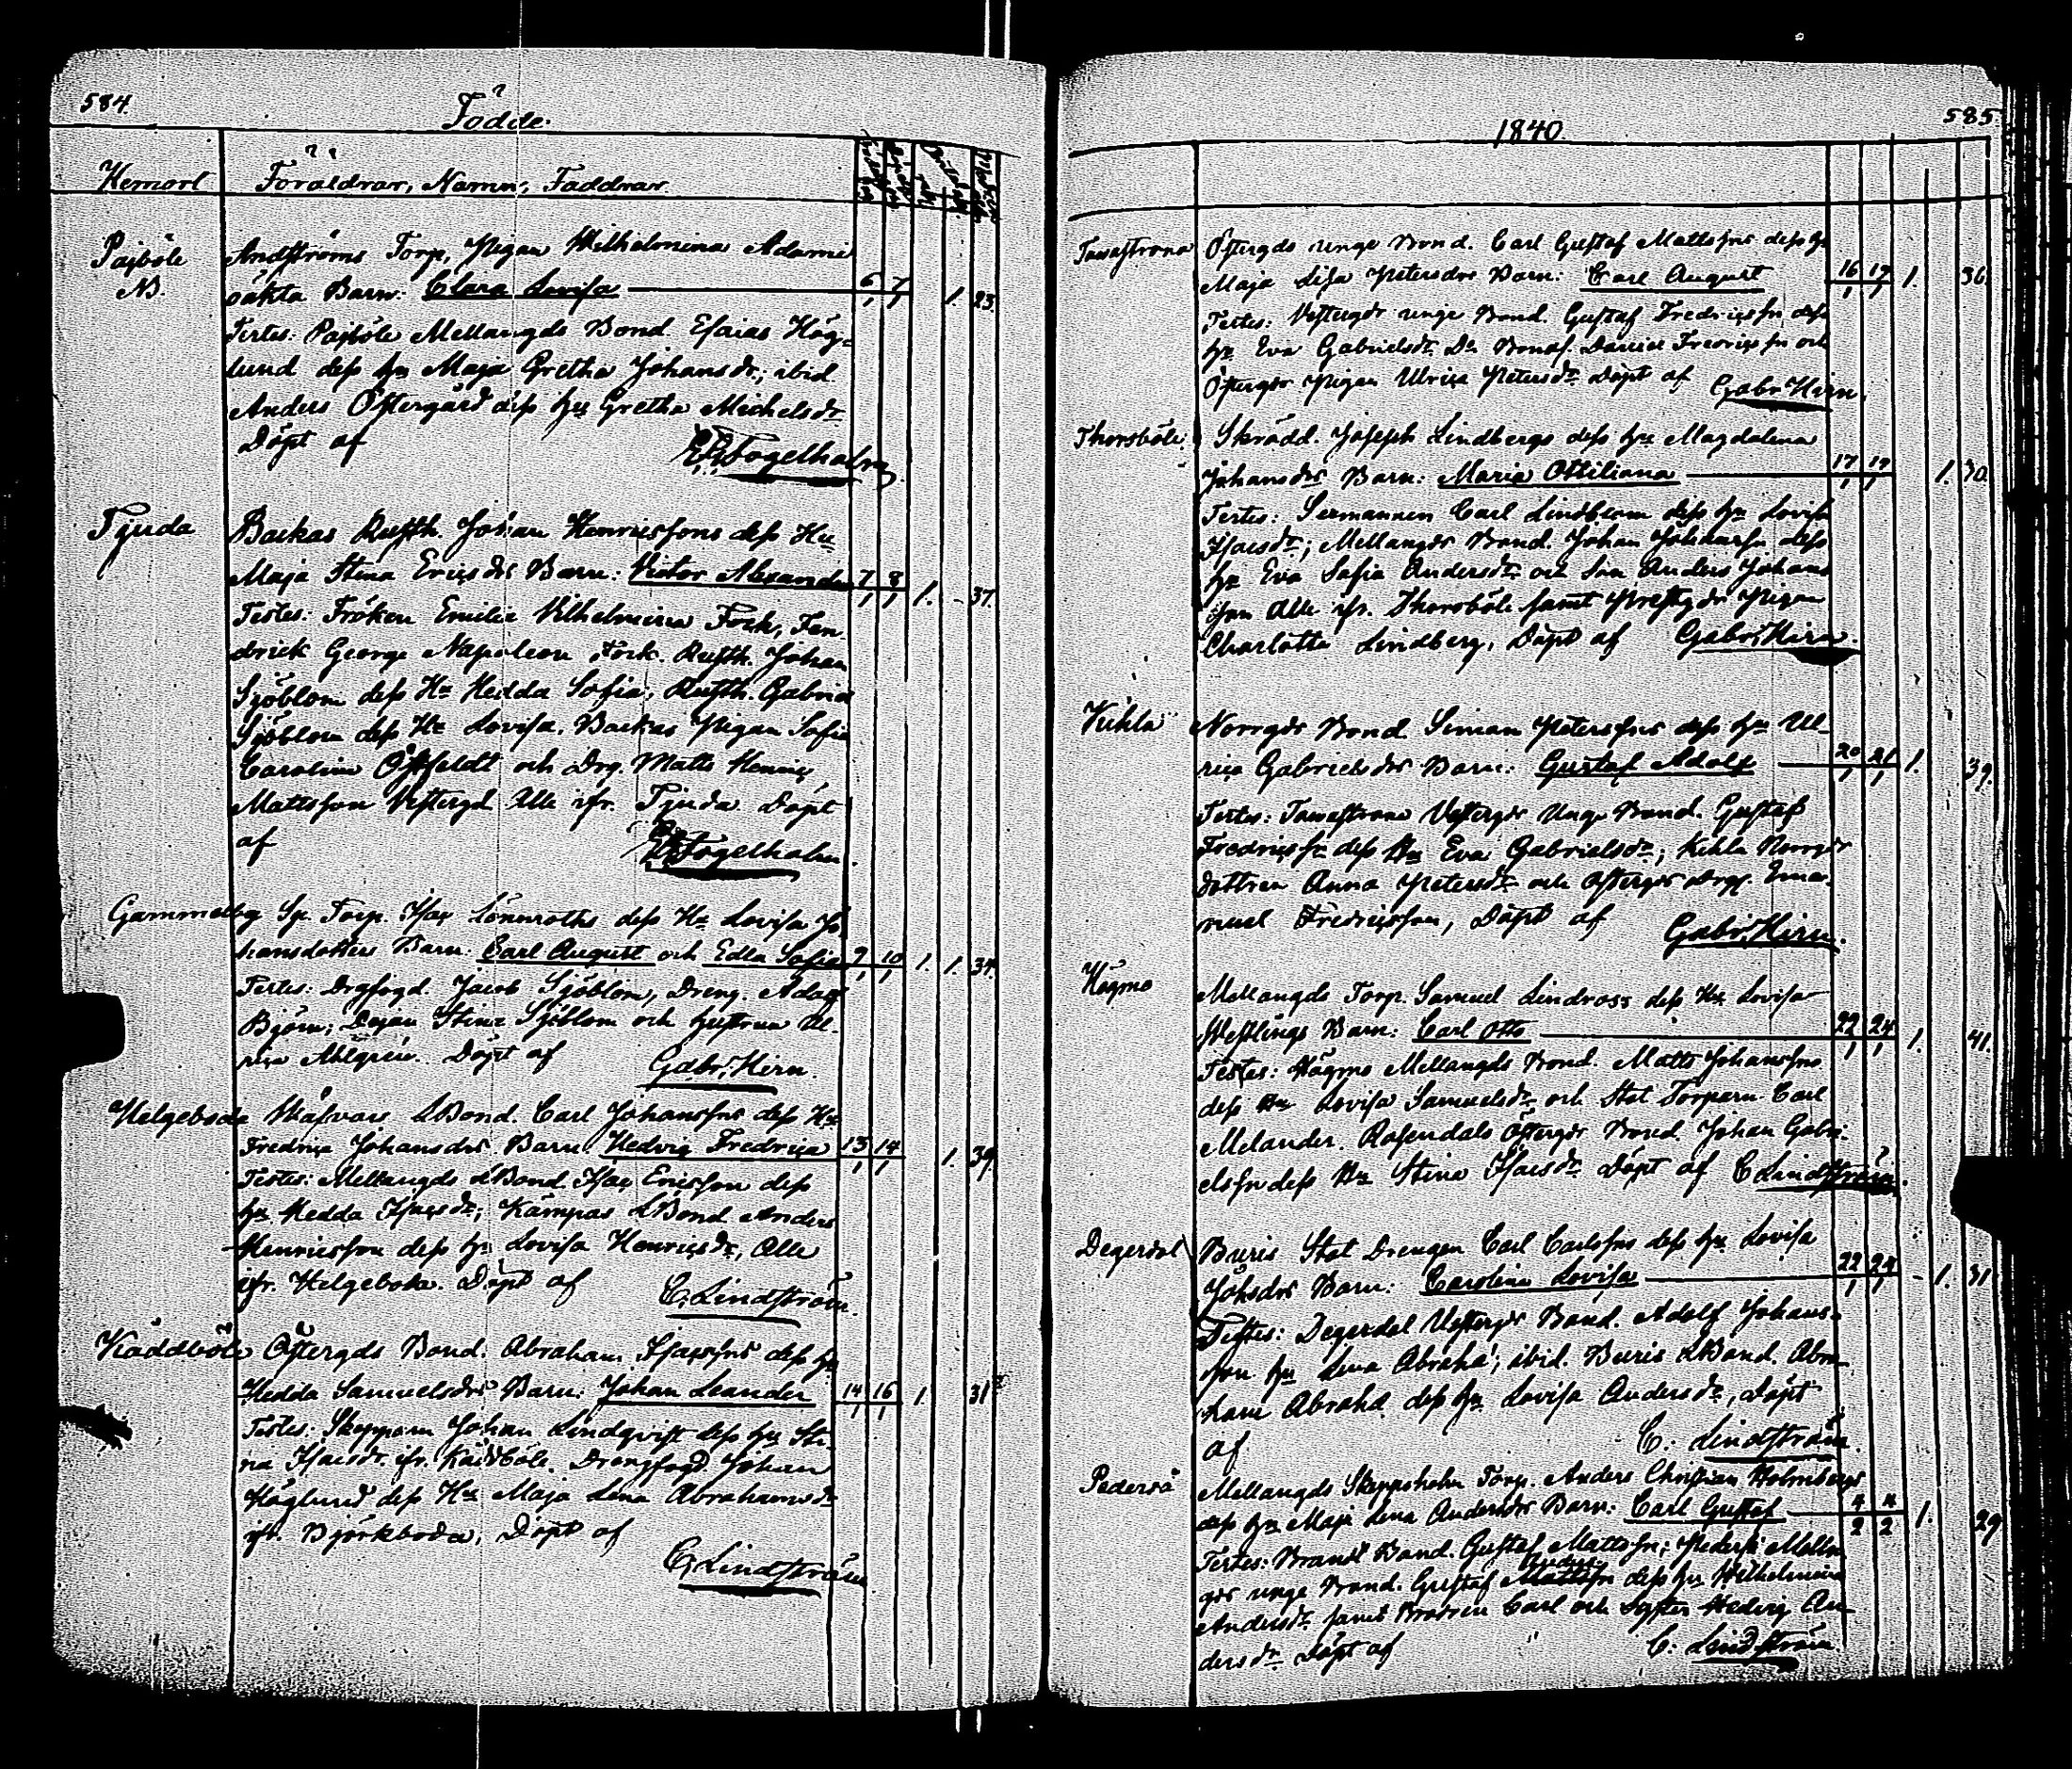 584.
Födde.
Hemort Föräldrar, Namn, Faddrar
Pajböle Andströms Torp, Pigan Wilhelmina Adami
N. oäkta Barn: Clara Lovisa 6/1 7/1 1. 23.
Testes: Pajböle Mellangds Bond. Esaias Hög-
lund dess hu Maja Gretha Johansdr; ibid.
Anders Östergård dess hu Gretha Michelsdr
Döpt af Fogelholm
Tjuda Backas Rusth. Johan Henricssons dess Hu
Maja Stina Ericsdrs Barn: Victor Alexander 7/1 8/1 1. - 37.
Testes: Fröken Emilie Vilhelmina Fock, Fen-
drick George Napoleon Fock. Rusth. Johan
Sjöblom dess Hu Hedda Sofia, Rusth. Gabriel
Sjöblom dess Hu Lovisa. Backas Pigan Sofia
Carolina Öhfeldt och Drg. Matts Henric
Mattsson Vestergd Alle ifr. Tjuda Döpt
af Fogelholm.
Gammelby Torp. Isac Lönnroths dess Hu Lovisa Jo-
hansdotters Barn: Carl August och Edla Sofia 9/1 10/1 1. 1. 34.
Testes: Drgfogd Jacob Sjöblom, Dreng. Adolf
Björn; Dejan Stina Sjöblom och hustrun Ul-
rica Ahlgren. Döpt af Gabr. Hirn.
Helgeboda LBond. Carl Johanssons dess Hu
Fredrica Johansdrs Barn: Hedvig Fredrica 13/1 14/1 1. 39.
Testes: Mellangds LBond. Isac Ericsson dess
hu Hedda Isacsdr; Kämpas LBond Anders
Henricsson dess hu Lovisa Henricsdr, Alle
ifr. Helgeboda. Döpt af C. Lindström.
Käddböle Östergds Bond. Abraham Isacssons dess hu
Hedda Samuelsdrs Barn: Johan Leander 14/1 16/1 1. 31
Testes: Skepparn Johan Lindqvist dess hu Sti-
na Isacsdr. ifr. Käddböle. Drengfogd. Johan
Höglund dess Hu Maja Lena Abrahamsdr
ifr. Björkboda, Döpt af
C. Lindström
1840. 585
Tavastrana Östergds unge Bond. Carl Gustaf Mattssons dess hu
Maja Lisa Petersdrs Barn: Carl August 16/1 17/1 1. 36.
Testes: Vestergds unge Bond. Gustaf Fredricsson dess
hu Eva Gabrielsdr. Do Bonds. Daniel Fredricsson och
Östergds Pigan Ulrica Petersdr. Döpt af Gabr. Hirn.
Thorsböle Skrädd. Joseph Lindbergs dess hu Magdalena
Johansdrs Barn: Maria Ottiliana 17/1 17/1 1. 30.
Testes: Carl Lindblom dess hu Lovisa
Isacsdr; Mellangds Bond. Johan Johansson dess
hu Eva Sofia Andersdr och Son Anders Johans-
son Alle ifr. Thorsböle samt Prestgds Pigan
Charlotta Lindberg, Döpt af Gabr. Hirn.
Kihla Norrgds Bond Simon Peterssons dess hu Ul-
rica Gabrielsdrs Barn: Gustaf Adolf 20/1 21/1 1. 39.
Testes: Tavastrana Vestergds Unge Bond. Gustaf
Fredricsson dess hu Eva Gabrielsdr; Kihla Norrgds
dottren Anna Petersdr och Östergds Drg. Ema-
nuel Fredricsson, Döpt af Gabr. Hirn.
Högmo Mellangds Torp. Samuel Lindross dess Hu Lovisa
Westlings Barn: Carl Otto 22/1 24/1 1. 41.
Testes: Högmo Mellangds Bond. Matts Johansson
dess hu Lovisa Samuelsdr och Stat Torparn Carl
Melander. Rosendals Östergds Bond. Johan Gabri-
elsson dess Hu Stina Isacsdr Döpt af C Lindström.
Degerdal Buris Stat Drengen Carl Carlssons dess hu Lovisa
Johsdrs Barn: Carolina Lovisa 22/1 24/1 - 1. 31
Testes: Degerdal Vestergds Bond. Adolf Johans-
son hu Lena Abraha; ibid. Buris LBond. Abra-
ham Abraha. dess hu Lovisa Andersdr, Döpt
af C. Lindström.
Pederså Mellangds Skeppsholm Torp. Anders Christian Holmbergs
dess hu Maja Lena Andersdrs Barn: Carl Gustaf 4/2 4/2 1. 29
Testes: Bond. Gustaf Mattsson; Pederså Mellan-
gds unge Bond. Gustaf Anders dess hu Wilhelmina
Andersdr. samt Brodren Carl och Syster Hedvig An-
dersdr Döpt af C. Lindström.